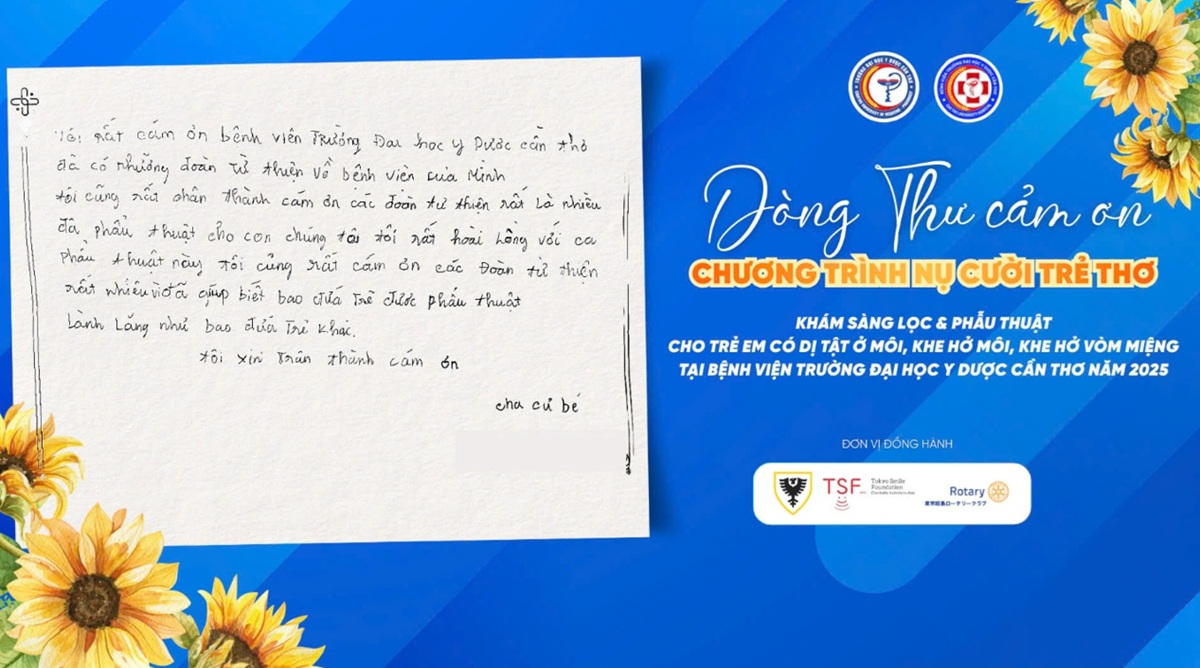 Tôi rất cám ơn bênh viên Trường Đai học y Dược cần thơ
đã có nhưỡng đoàn từ thiện về bênh viên của Mình
tôi cũng rất chân thành cám ơn các đoàn từ thiện rất là nhiều
đã phẩu thuật cho con chúng tôi tôi rất hoài lòng với ca
phẩu thuật này tôi củng rất cám ơn các Đoàn từ thiện
rất nhiều vì đã giúp biết bao đứa trẻ được phẩu thuật
Lành Lăng như bao đứa trẻ khác.
tôi xin trân thành cám ơn
cha củ bé
Dòng Thư cảm ơn
CHƯƠNG TRÌNH NỤ CƯỜI TRẺ THƠ
KHÁM SÀNG LỌC & PHẪU THUẬT
CHO TRẺ EM CÓ DỊ TẬT Ở MÔI, KHE HỞ MÔI, KHE HỞ VÒM MIỆNG
TẠI BỆNH VIỆN TRƯỜNG ĐẠI HỌC Y DƯỢC CẦN THƠ NĂM 2025
ĐƠN VỊ ĐỒNG HÀNH
TSF
Tokyo Smile
Foundation
Rotary